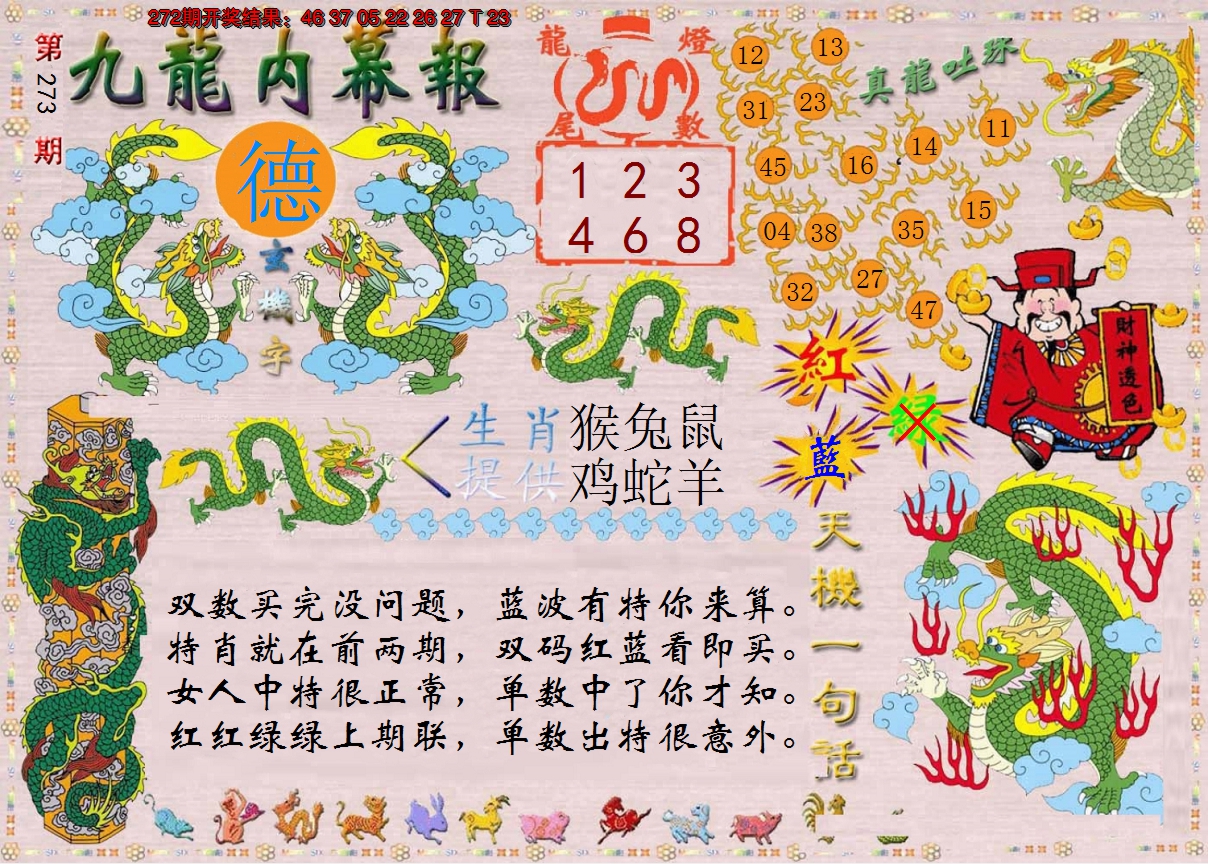 272期开奖结果：46 37 05 22 26 27 T 23
第
273
期
九龍内幕報
德
玄
機
字
龍燈
尾數
1 2 3
4 6 8
真龍吐珠
12
13
31
23
45
16
14
11
04
38
35
15
32
27
47
財神透色
紅
绿
藍
生肖
提供
猴兔鼠
鸡蛇羊
天機一句話
双数买完没问题，蓝波有特你来算。
特肖就在前两期，双码红蓝看即买。
女人中特很正常，单数中了你才知。
红红绿绿上期联，单数出特很意外。